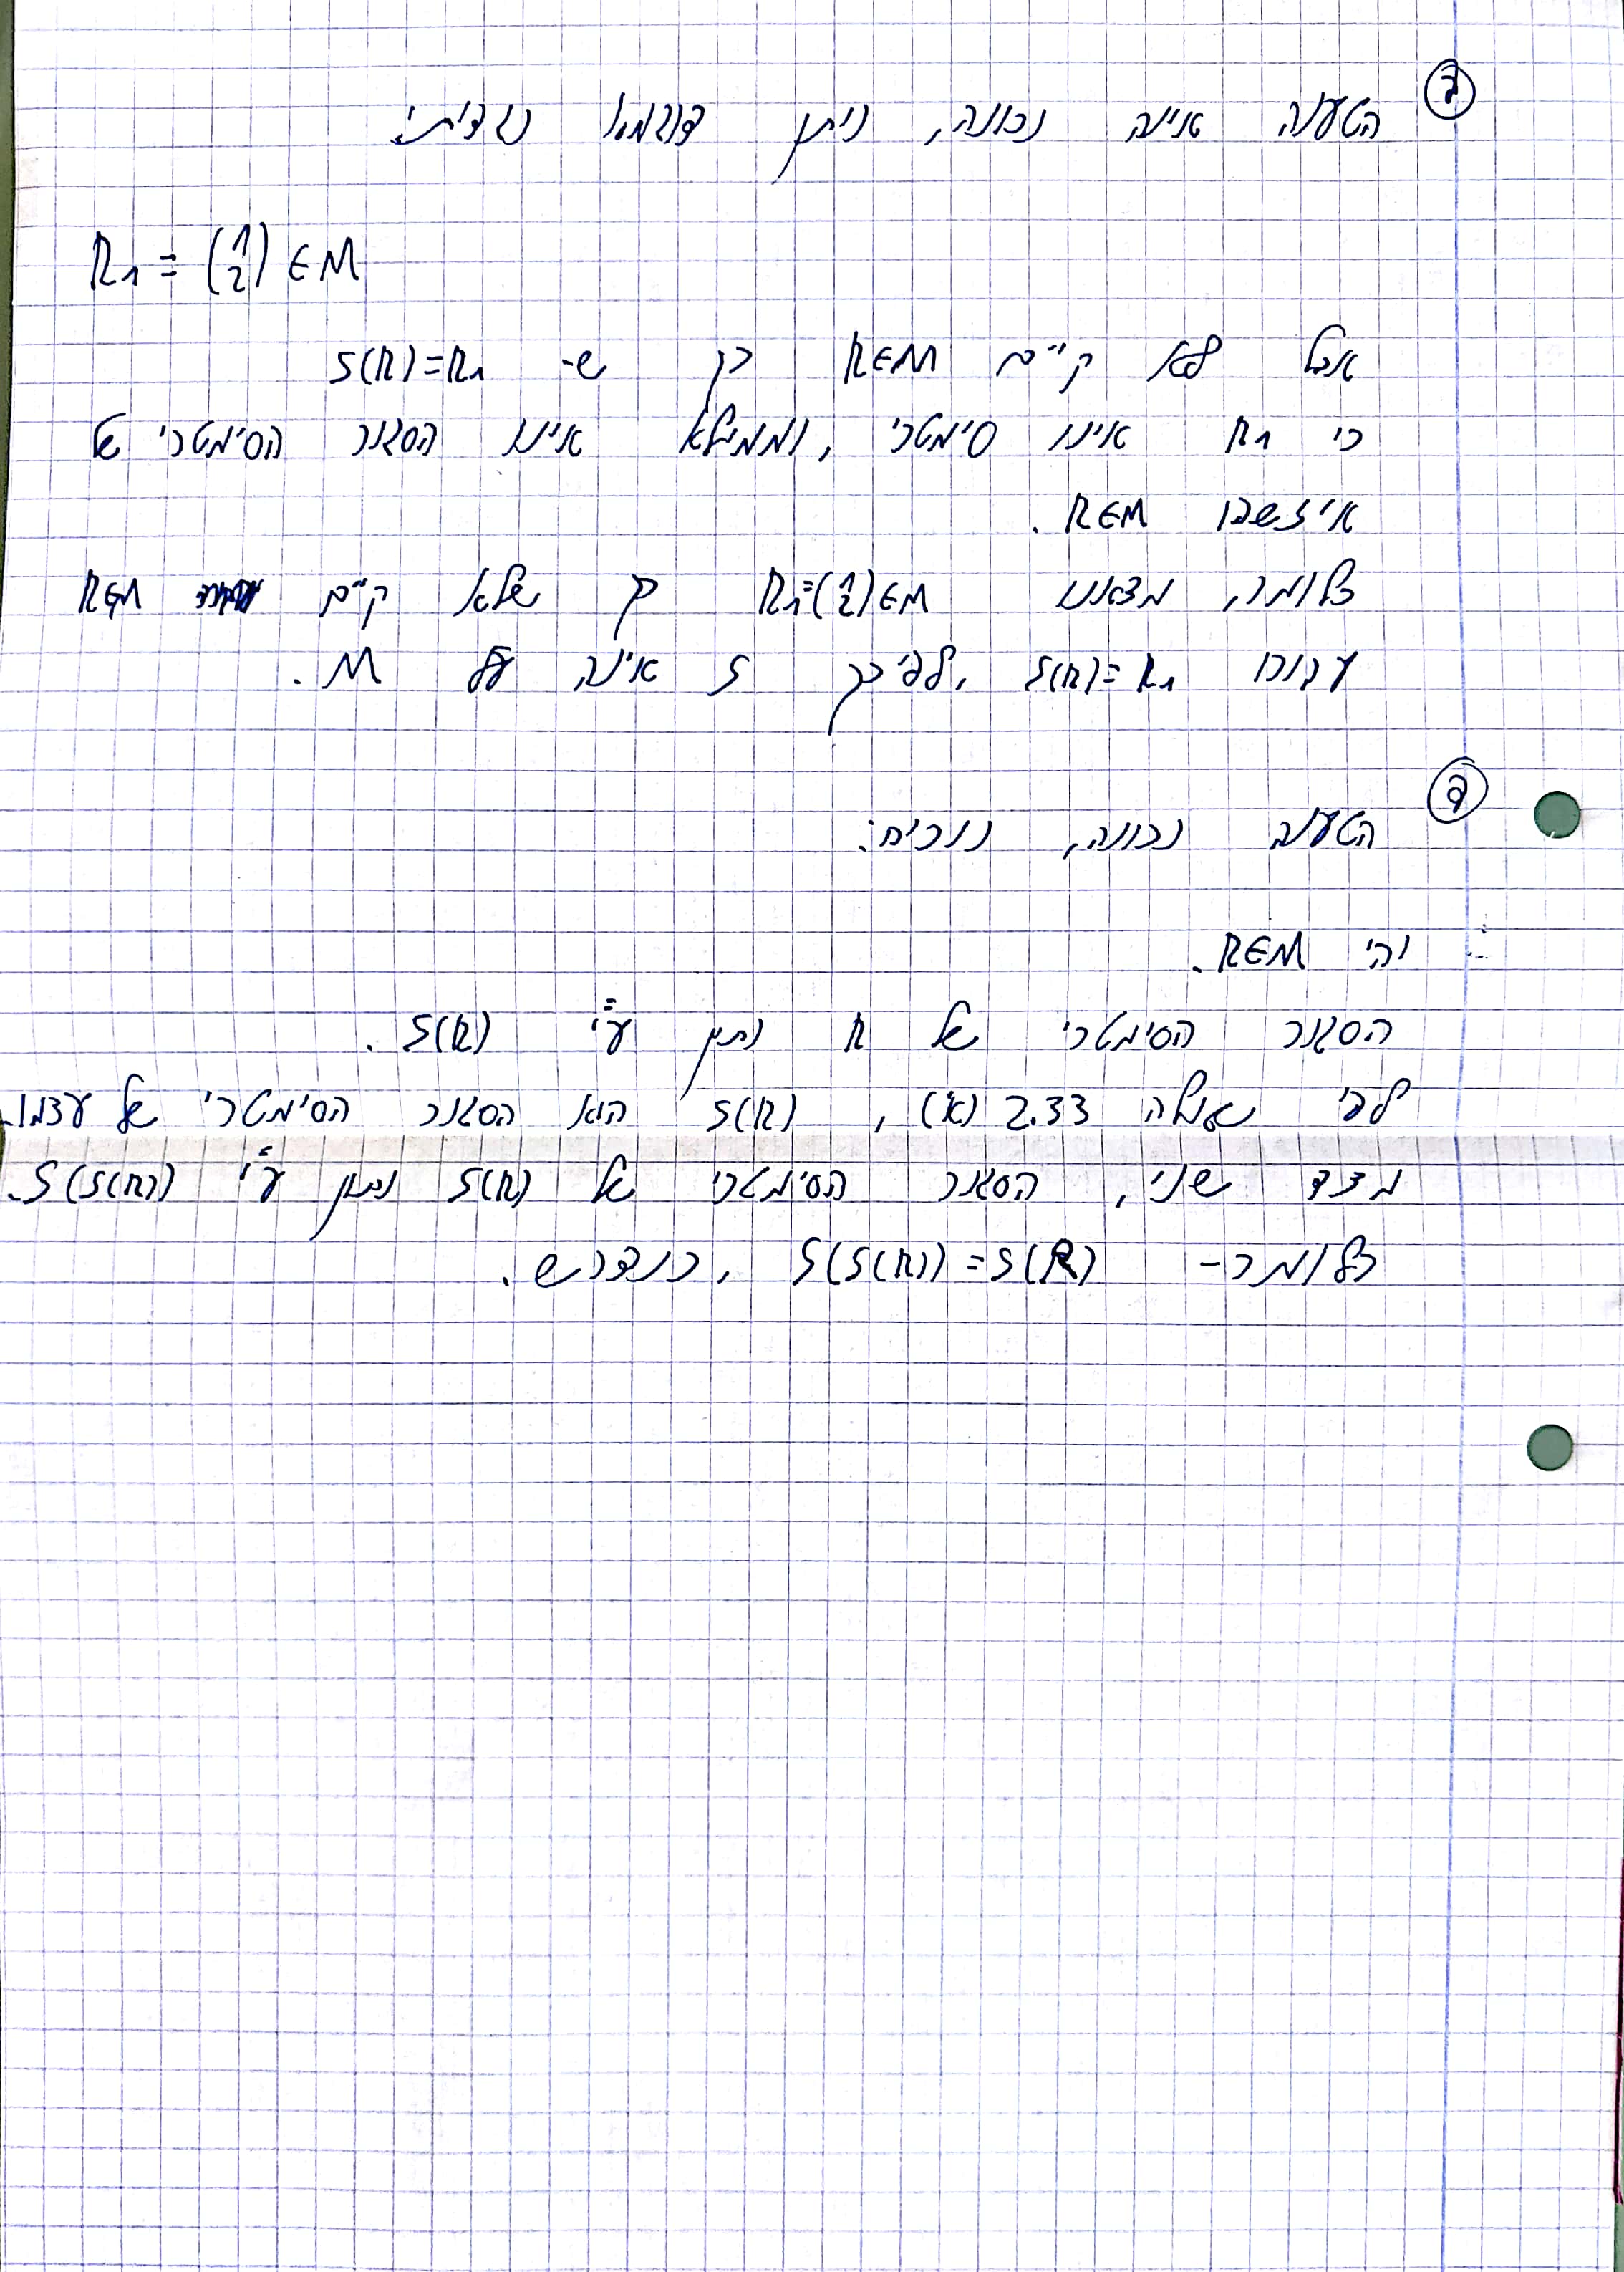 ג
הטענה אינה נכונה, ניתן דוגמא נגדית:
R₁ = (1 2) ∈ M
אבל לא קיים R∈M כך ש- S(R)=R₁
כי R₁ אינו סימטרי, וממילא אינו הסגור הסימטרי של
איזשהו R∈M.
כלומר, מצאנו R₁=(1 2)∈M כך שלא קיים R∈M
עבורו S(R)=R₁, לפיכך S אינה על M.
ד
הטענה נכונה, נוכיח:
יהי R∈M.
הסגור הסימטרי של R נתון ע"י S(R).
לפי שאלה 2.33 (א'), S(R) הוא הסגור הסימטרי של עצמו.
מצד שני, הסגור הסימטרי של S(R) נתון ע"י S(S(R)).
כלומר- S(S(R))=S(R), כנדרש.